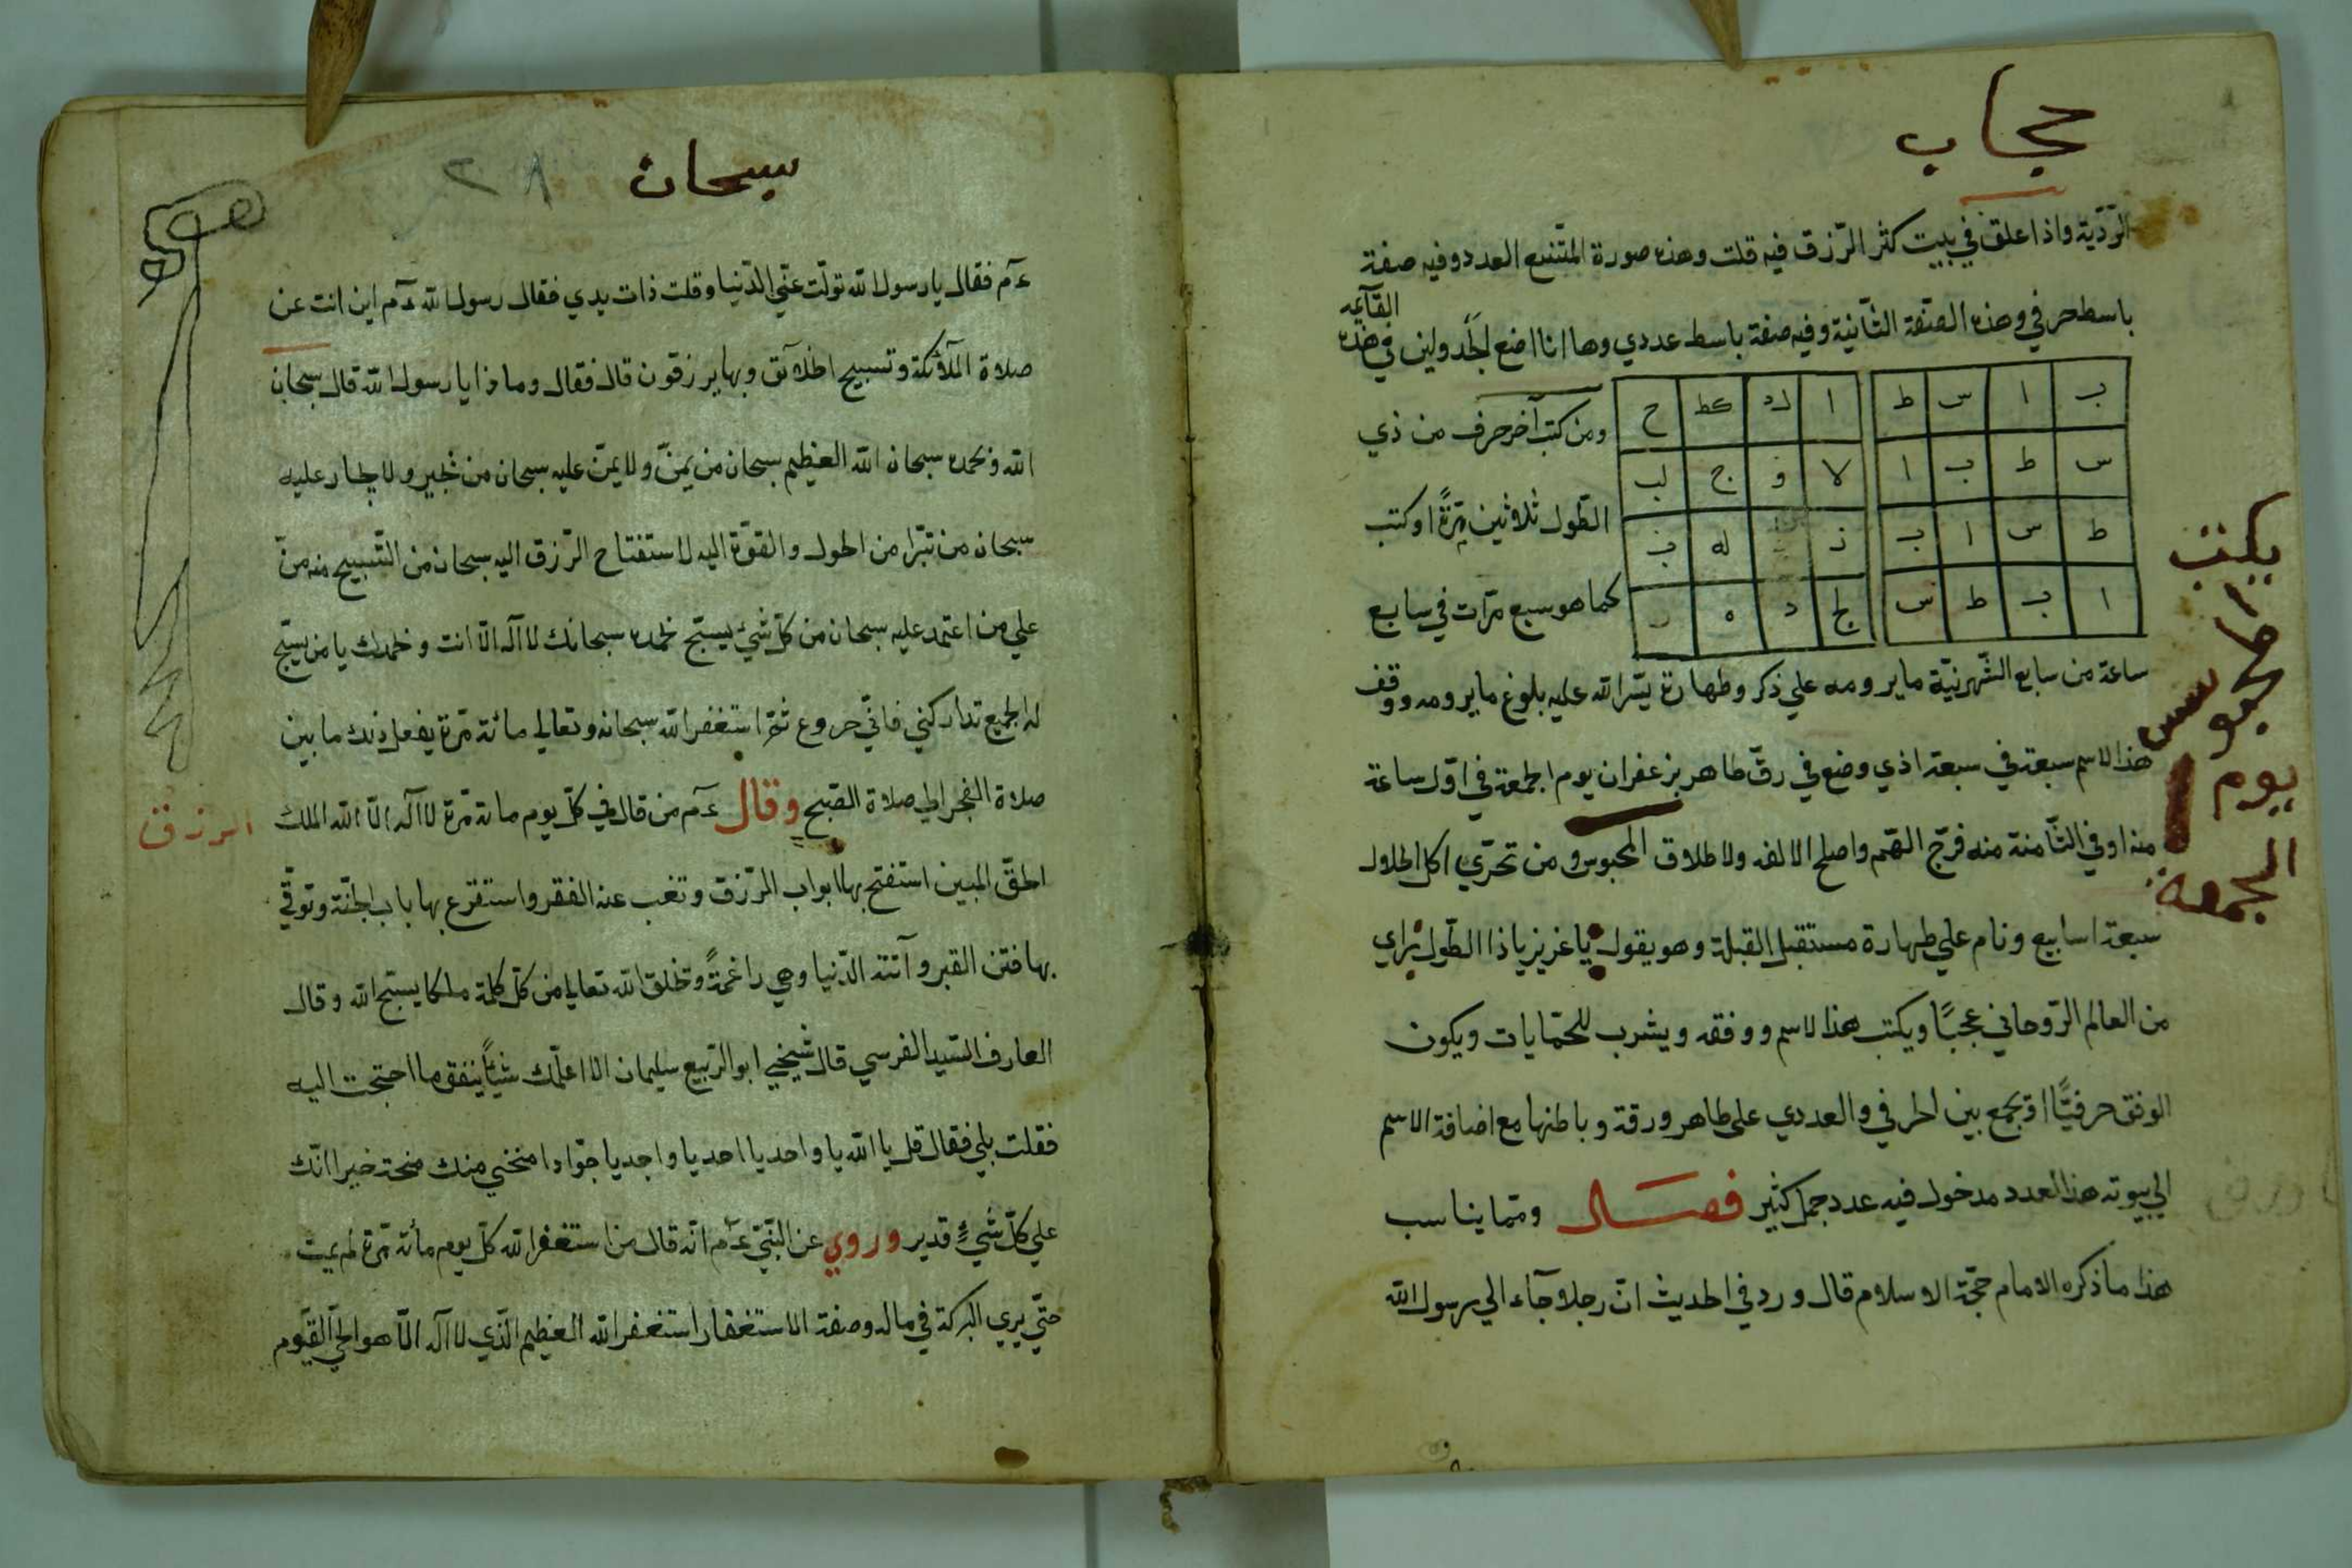 حجاب
الرّديّة واذا علق في بيت كثر الرّزق فيه قلت وهذه صورة المتّسع العدد وفيه صفة
القآئمه
باسط حرفي وهذه الصّفة الثّانية وفيه صفة باسط عددي وها انا اضع الجدولين في هذه
ب ا س ط
ا لد كط ح
س ط ب ا
لا و ج لب
ط س ا ب
ز له ب
ا ب ط س
لج د ه
ومن كتب آخر حرف من ذي
الطّول ثلاثين مرّةً او كتب
كما هو سبع مرّات في سابع
ساعة من سابع الشّهر نيّة ما يرومه علي ذكر وطهارة يسّر الله عليه بلوغ ما يرومه ووقف
هذا الاسم سبعة في سبعة اذي وضع في رقّ طاهر بزعفران يوم الجمعة في اوّل ساعة
منه او في الثّامنة منه فرّج الهّم واصلح الالفه ولاطلاق المحبوس ومن تحرّي اكل الحلال
سبعة اسابيع ونام علي طهارة مستقبل القبلة وهو يقول يا عزيز يا ذا الطّول يراي
من العالم الرّوحاني عجبًا ويكتب هذا الاسم ووفقه ويشرب للحمّايات ويكون
الوفق حرفيًّا او يجمع بين الحرفي والعددي على طاهر ورقة وباطنها مع اضافة الاسم
الي بيوته هذا العدد مدخول فيه عدد جمل كثير فصـل وممّا يناسب
هذا ما ذكره الامام حجّة الاسلام قال ورد في الحديث انّ رجلا جآء الي رسول الله
يكتب
المحبوس
يوم
الجمعة
سبحان
٢٨
ءم فقال يا رسول الله تولّت عنّي الدّنيا وقلت ذات يدي فقال رسول الله ءم اين انت عن
صلاة الملآئكة وتسبيح الخلآئق وبها يرزقون قال فقال وماذا يا رسول الله قال سبحان
الله وبحمده سبحان الله العظيم سبحان من يمنّ ولا يمنّ عليه سبحان من يجير ولا يجار عليه
سبحان من تبرّا من الحول والقوّة اليه لاستفتاح الرّزق اليه سبحان من التّسبيح منه منّ
علي من اعتمد عليه سبحان من كلّ شيء يسبّح بحمده سبحانك لا آله الّا انت وبحمدك يا من يسبّح
له الجميع تداركني فانّي جزوع ثمّ استغفر الله سبحانه وتعالي مائة مرّة يفعل ذلك ما بين
صلاة الفجر الي صلاة الصّبح وقال ءم من قال في كلّ يوم مائة مرّة لا آله الّا الله الملك
الحقّ المبين استفتح بها ابواب الرّزق وتغب عنه الفقر واستقرع بها باب الجنّة وتوقّي
بها فتن القبر وآتته الدّنيا وهي راغمةً وخلق الله تعالي من كلّ كلمة ملكا يسبّح الله وقال
العارف السّيد الفرسي قال شيخي ابو الرّبيع سليمان الا اعلّمك شيأً ينفق ما احتجت اليه
فقلت بلي فقال قل يا الله يا واحد يا احد يا واجد يا جوّاد امنحني منك منحة خير انّك
علي كلّ شيءٍ قدير وروي عن النّبيّ ءم انّه قال من استغفر الله كلّ يوم مائة مرّة لم يمت
حتّي يري البركة في ماله وصفة الاستغفار استغفر الله العظيم الّذي لا آله الّا هو الحيّ القيّوم
الرزق